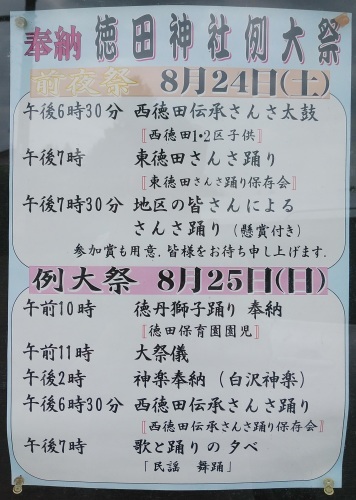 奉納 徳田神社例大祭
前夜祭 8月24日(土)
午後6時30分 西徳田伝承さんさ太鼓
〚西徳田1・2区子供〛
午後7時 東徳田さんさ踊り
〚東徳田さんさ踊り保存会〛
午後7時30分 地区の皆さんによる
さんさ踊り (懸賞付き)
参加賞も用意.皆様をお待ち申し上げます.
例大祭 8月25日(日)
午前10時 徳丹獅子踊り 奉納
〚徳田保育園園児〛
午前11時 大祭儀
午後2時 神楽奉納 (白沢神楽)
午後6時30分 西徳田伝承さんさ踊り
〚西徳田伝承さんさ踊り保存会〛
午後7時 歌と踊りの夕べ
「民謡 舞踊」